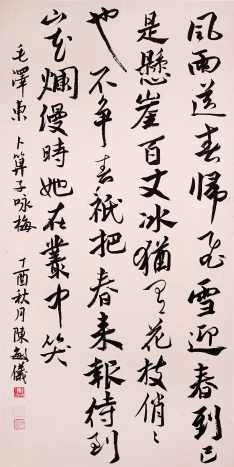 風雨送春歸飛雪迎春到已
是懸崖百丈冰猶有花枝俏俏
也不爭春祇把春来報待到
山花爛漫時她在叢中笑
毛澤東 卜算子咏梅
丁酉秋月陳